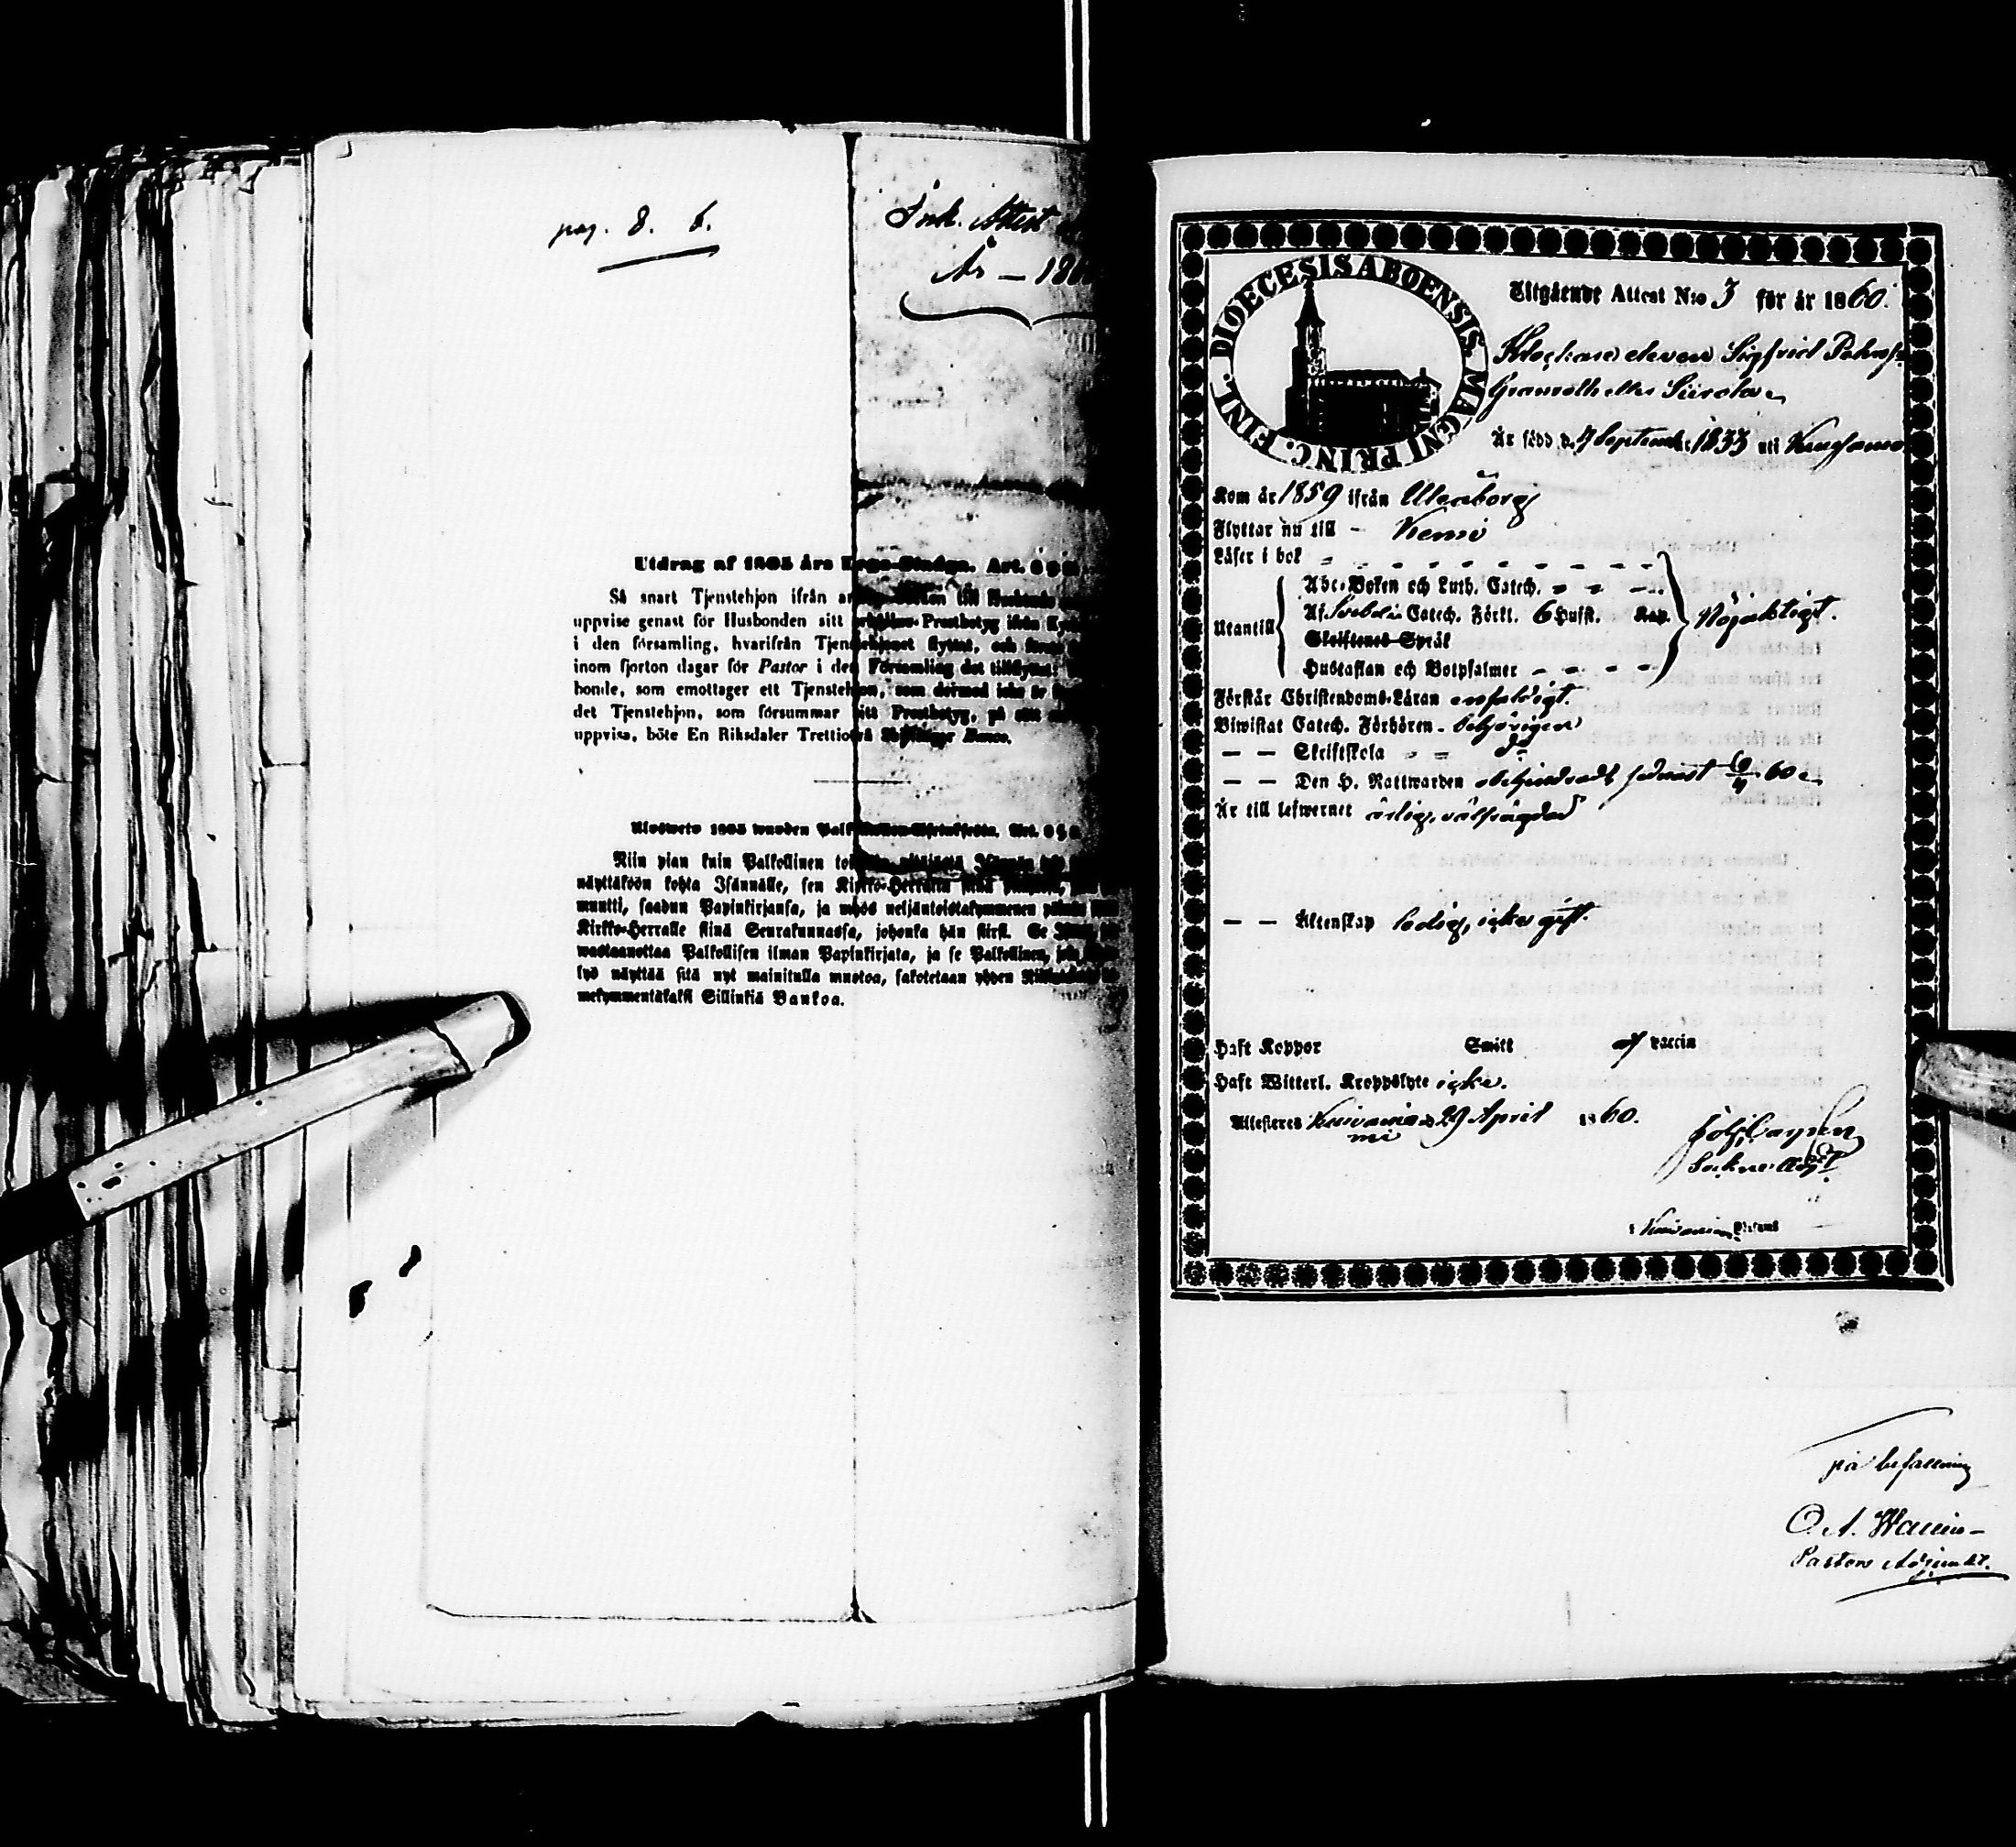 pag. 8. b.
Ink. Attest
År - 186
Utdrag af 1805 års Lego-Stadga. Art.
Så snart Tjenstehjon ifrån
uppvise genast för Husbonden sitt Prestbetyg ifrån
i den församling, hvarifrån Tjenstehjonet flyttat, och
inom fjorton dagar för Pastor i den Församling det tillflyttat.
bonde, som emottager ett Tjenstehjon, som dermed icke är
det Tjenstehjon, som försummar sitt Prestbetyg, på
uppvisa, böte En Riksdaler Banco.
Niin pian kuin Palkollinen
näyttäköön kohta Isännälle, sen Kirkko-Herralta siinä
muutti, saadun Papinkirjansa, ja myös neljäntoistakymmenen päiwän
Kirkko-Herralle siinä Seurakunnassa, johonka hän siirsi. Se
wastaanottaa Palkollisen ilman Papinkirjata, ja se Palkollinen,
lyö näyttää sitä nyt mainitulla muotoa, sakotetaan yhden
mekymmentäkaksi Sillinkiä Bankoa.
DIOECESIS ABOENSIS. MAGNI PRINC. FINL.
Utgående Attest N:o 3 för år 1860.
eleven Sigfrid
Granroth eller
Är född d. 7 Septemb. 1833 uti Kuusamo
Kom år 1859 ifrån Uleåborg
Flyttar nu till - Kemi
Läser i bok
Utantill
Abc-Boken och Luth. Catech.
Af Svebelii Catech. Förkl. 6 Hufst.
Nöjaktigt.
Skriftenes Språk
Hustaflan och Botpsalmer
Förstår Christendoms-Läran enfaldigt.
Biwistat Catech. Förhören - behörigen
— — Skriftskola d:o
— — Den H. Nattwarden senast 60
Är till lefwernet ärlig, välfrägdad
— — Äktenskap ledig, icke gift.
Haft Koppor Smitt af vaccin
Haft Witterl. Kroppslyte icke.
Attesteres Kuivaniemi d. 29 April 1860.
i Kuivaniemi
på befallning
O. A.
Pastors Adjunkt.